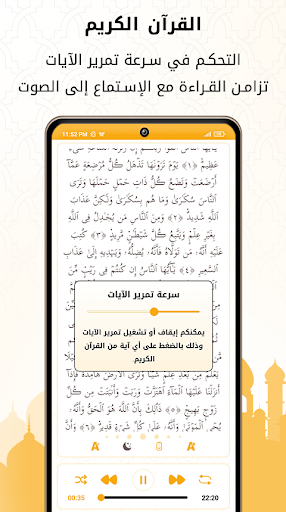 القرآن الكريم
التحكم في سرعة تمرير الآيات
تزامن القراءة مع الإستماع إلى الصوت
11:52 PM
عَظِيمٌ ﴿١﴾ يَوْمَ تَرَوْنَهَا تَذْهَلُ كُلُّ مُرْضِعَةٍ عَمَّآ
أَرْضَعَتْ وَتَضَعُ كُلُّ ذَاتِ حَمْلٍ حَمْلَهَا وَتَرَى
ٱلنَّاسَ سُكَٰرَىٰ وَمَا هُم بِسُكَٰرَىٰ وَلَٰكِنَّ عَذَابَ
ٱللَّهِ شَدِيدٌ ﴿٢﴾ وَمِنَ ٱلنَّاسِ مَن يُجَٰدِلُ فِى ٱللَّهِ
بِغَيْرِ عِلْمٍ وَيَتَّبِعُ كُلَّ شَيْطَٰنٍ مَّرِيدٍ ﴿٣﴾ كُتِبَ
عَلَيْهِ أَنَّهُۥ مَن تَوَلَّاهُ فَأَنَّهُۥ يُضِلُّهُۥ وَيَهْدِيهِ إِلَىٰ عَذَابِ
ٱلسَّعِيرِ ﴿٤﴾ يَٰٓأَيُّهَا ٱلنَّاسُ إِن كُنتُمْ فِى رَيْبٍ مِّنَ
سرعة تمرير الآيات
يمكنكم إيقاف أو تشغيل تمرير الآيات
وذلك بالضغط على أي آية من القرآن
الكريم
عَلَيْهَا ٱلْمَآءَ ٱهْتَزَّتْ وَرَبَتْ وَأَنۢبَتَتْ مِن كُلِّ
زَوْجٍۭ بَهِيجٍ ﴿٥﴾ ذَٰلِكَ بِأَنَّ ٱللَّهَ هُوَ ٱلْحَقُّ وَأَنَّهُۥ
00:35
22:20